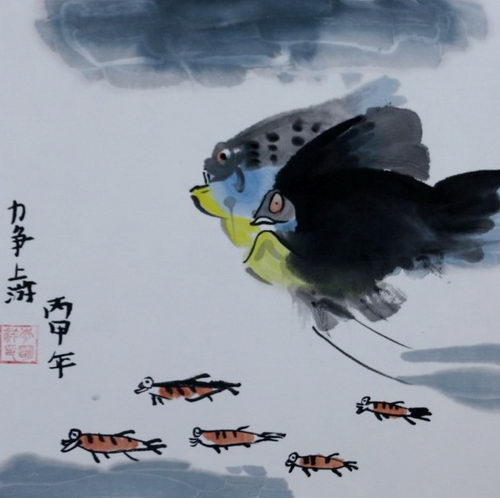 力争上游
丙甲年